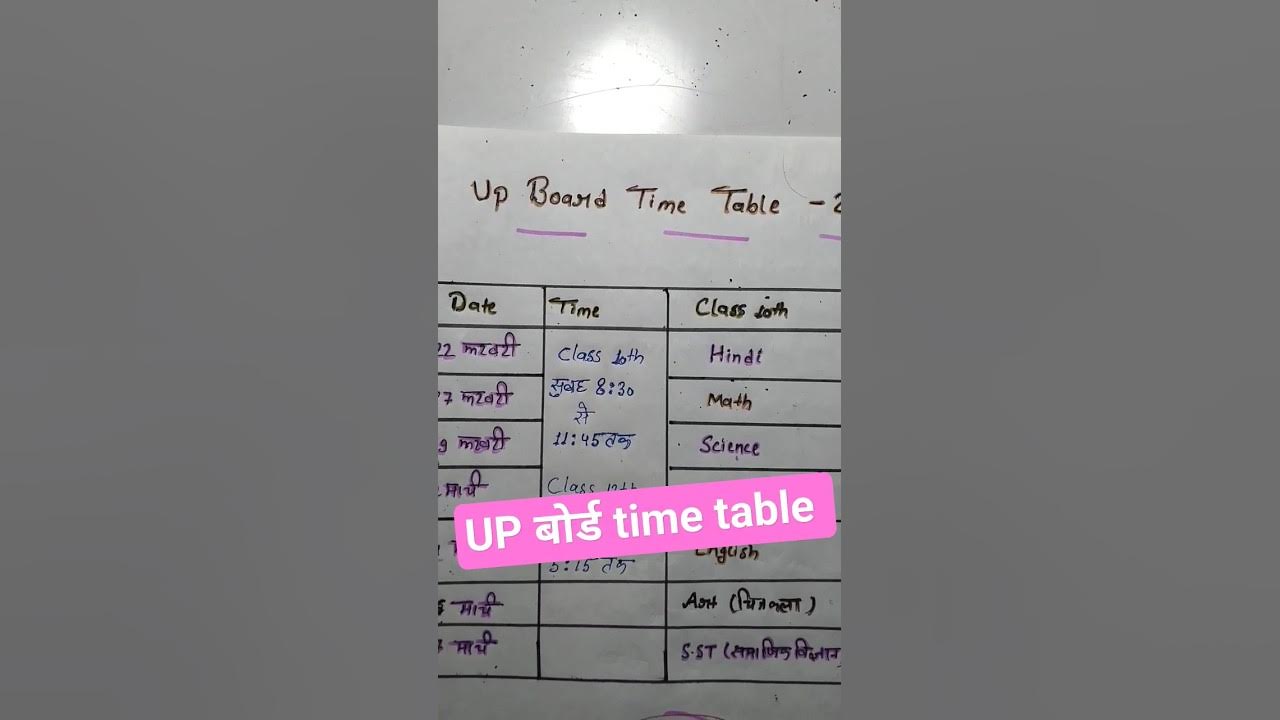 Up Board Time Table -2
Date Time Class 10th
22 फरवरी Class 10th Hindi
7 फरवरी सुबह 8:30 Math
से
9 फरवरी 11:45 तक Science
मार्च Class 12th
UP बोर्ड time table
5:15 तक English
मार्च Art (चित्रकला)
मार्च S.ST (समाजिक विज्ञान